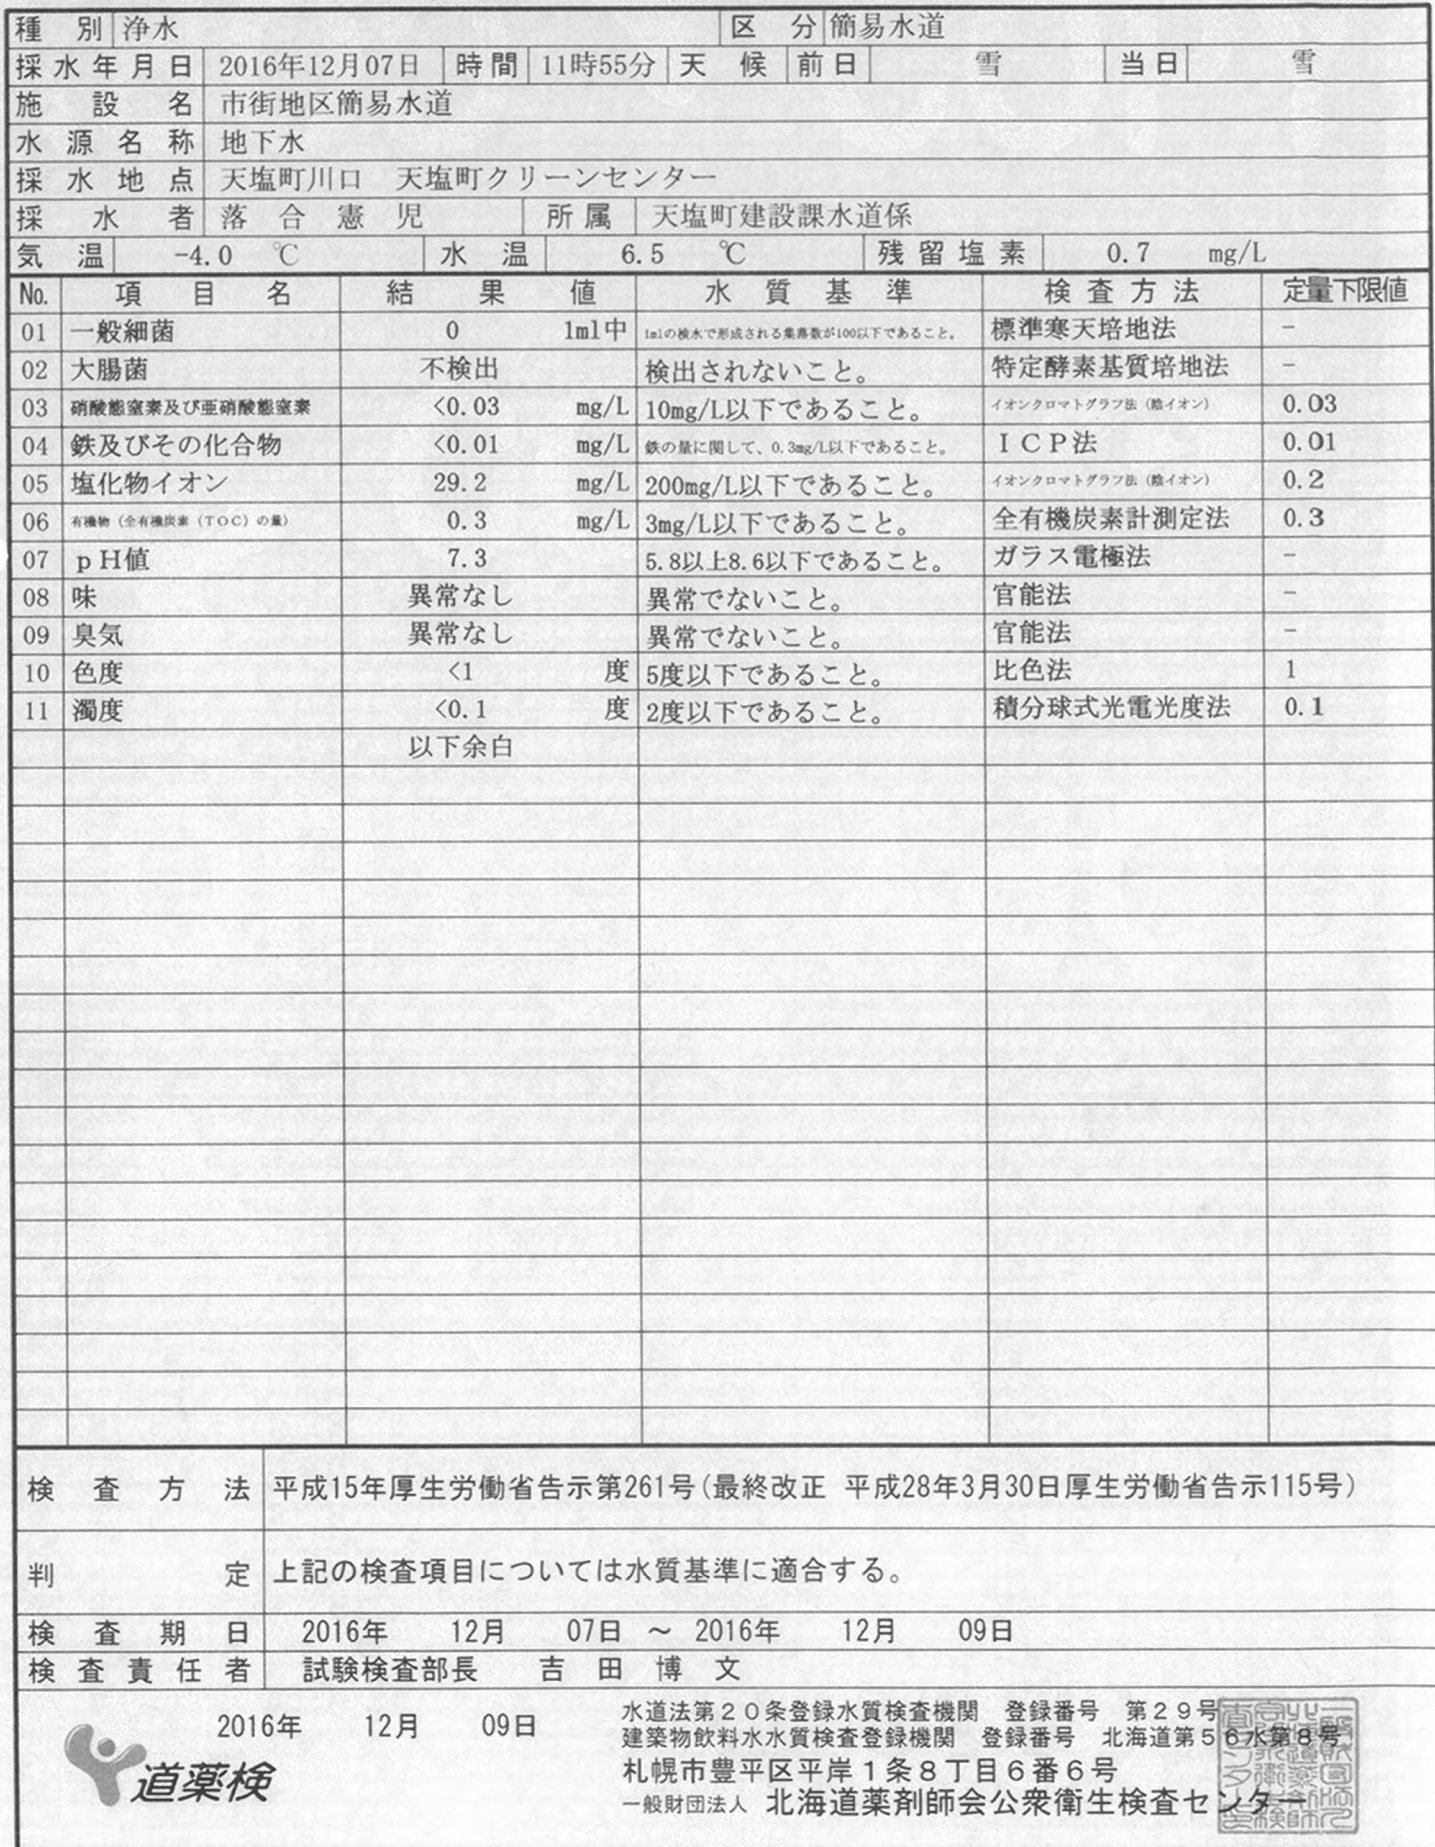 種別 浄水 区分 簡易水道
採水年月日 2016年12月07日 時間 11時55分 天候 前日 雪 当日 雪
施設名 市街地区簡易水道
水源名称 地下水
採水地点 天塩町川口 天塩町クリーンセンター
採水者 落合憲児 所属 天塩町建設課水道係
気温 -4.0 ℃ 水温 6.5 ℃ 残留塩素 0.7 mg/L
No. 項目名 結果値 水質基準 検査方法 定量下限値
01 一般細菌 0 1ml中 1mlの検水で形成される集落数が100以下であること。 標準寒天培地法 -
02 大腸菌 不検出 検出されないこと。 特定酵素基質培地法 -
03 硝酸態窒素及び亜硝酸態窒素 <0.03 mg/L 10mg/L以下であること。 イオンクロマトグラフ法（陰イオン） 0.03
04 鉄及びその化合物 <0.01 mg/L 鉄の量に関して、0.3mg/L以下であること。 ＩＣＰ法 0.01
05 塩化物イオン 29.2 mg/L 200mg/L以下であること。 イオンクロマトグラフ法（陰イオン） 0.2
06 有機物（全有機炭素（TOC）の量） 0.3 mg/L 3mg/L以下であること。 全有機炭素計測定法 0.3
07 ｐＨ値 7.3 5.8以上8.6以下であること。 ガラス電極法 -
08 味 異常なし 異常でないこと。 官能法 -
09 臭気 異常なし 異常でないこと。 官能法 -
10 色度 <1 度 5度以下であること。 比色法 1
11 濁度 <0.1 度 2度以下であること。 積分球式光電光度法 0.1
以下余白
検査方法 平成15年厚生労働省告示第261号(最終改正 平成28年3月30日厚生労働省告示115号)
判定 上記の検査項目については水質基準に適合する。
検査期日 2016年 12月 07日 ～ 2016年 12月 09日
検査責任者 試験検査部長 吉田博文
2016年 12月 09日
道薬検
水道法第２０条登録水質検査機関 登録番号 第２９号
建築物飲料水水質検査登録機関 登録番号 北海道第５６水第８号
札幌市豊平区平岸１条８丁目６番６号
一般財団法人 北海道薬剤師会公衆衛生検査センター